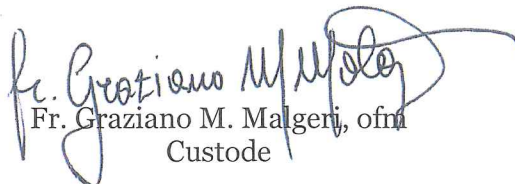 fr. Graziano M
Fr. Graziano M. Malgeri, ofm
Custode